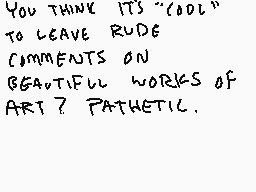 YOU THINK IT'S "COOL"
TO LEAVE RUDE
COMMENTS ON
BEAUTIFUL WORKS OF
ART? PATHETIC.